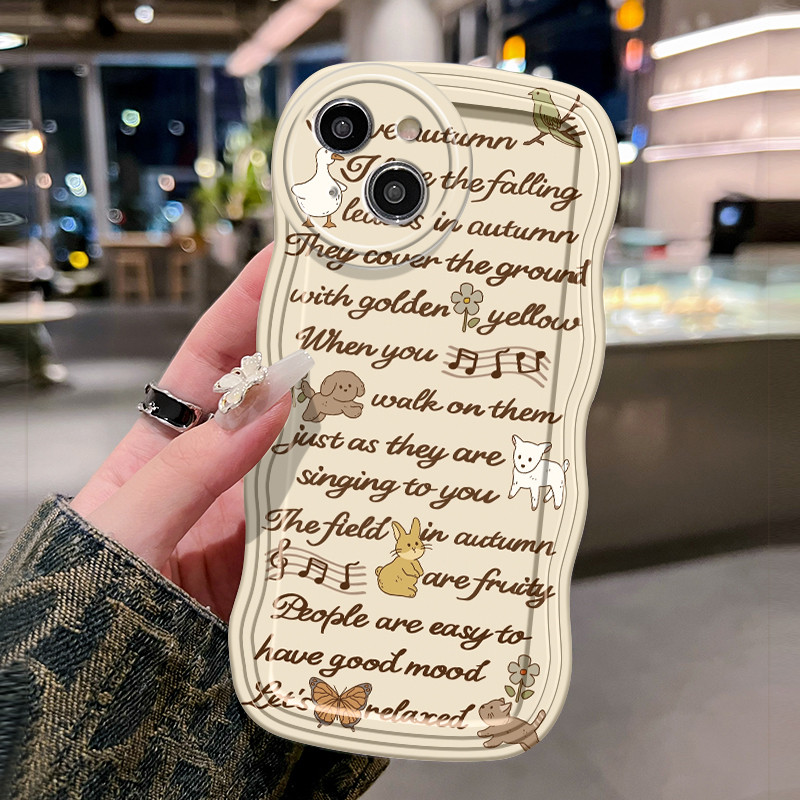 autumn
the falling
in autumn
They cover the ground
with golden yellow
When you
walk on them
just as they are
singing to you
The field in autumn
are fruity
People are easy to
have good mood
Let's relaxed